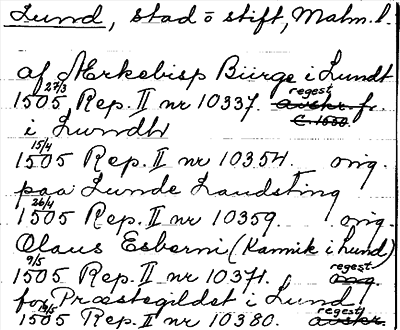 Lund, stad o stift, Malm. l.
af Ærkebisp Bürge i Lundt
27/3 regest
1505 Rep. II nr 10337. avskr. fr.
i Lwndh c. 1550.
15/4
1505 Rep. II nr 10354. orig.
paa Lunde Landsting
26/4
1505 Rep. II nr 10359. orig.
Olaus Esberni (Kannik i Lund)
9/5 regest
1505 Rep. II nr 10371. orig.
for Præstegildet i Lund
16/5 regest
1505 Rep. II nr 10380. avskr.